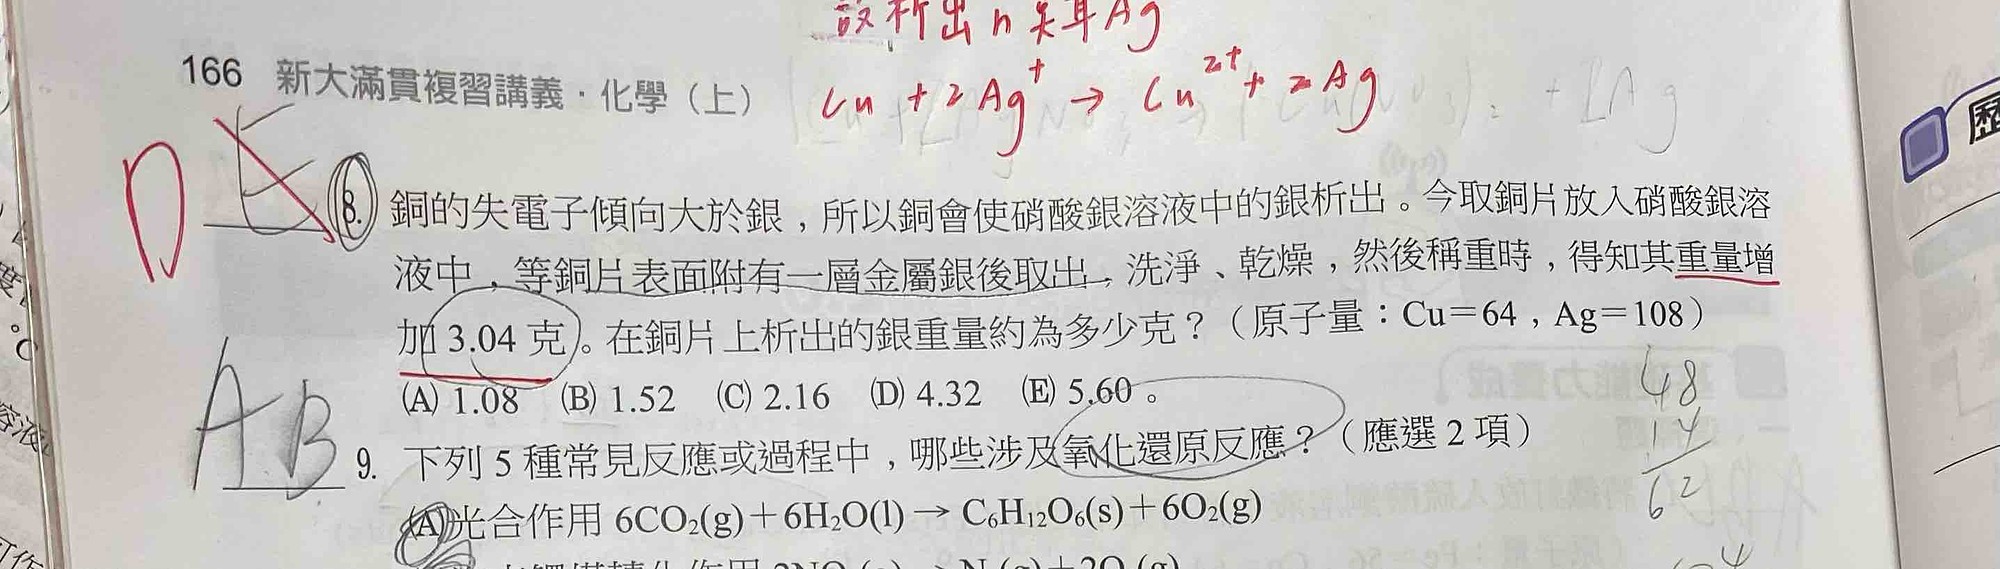 設析出 n 莫耳 Ag
166 新大滿貫複習講義．化學（上）
Cu + 2Ag⁺ → Cu²⁺ + 2Ag
D E 8. 銅的失電子傾向大於銀，所以銅會使硝酸銀溶液中的銀析出。今取銅片放入硝酸銀溶
液中，等銅片表面附有一層金屬銀後取出，洗淨、乾燥，然後稱重時，得知其重量增
加 3.04 克。在銅片上析出的銀重量約為多少克？（原子量：Cu＝64，Ag＝108）
(A) 1.08 (B) 1.52 (C) 2.16 (D) 4.32 (E) 5.60。
AB 9. 下列 5 種常見反應或過程中，哪些涉及氧化還原反應？（應選 2 項）
(A)光合作用 6CO₂(g)＋6H₂O(l) → C₆H₁₂O₆(s)＋6O₂(g)
48
14
62
歷